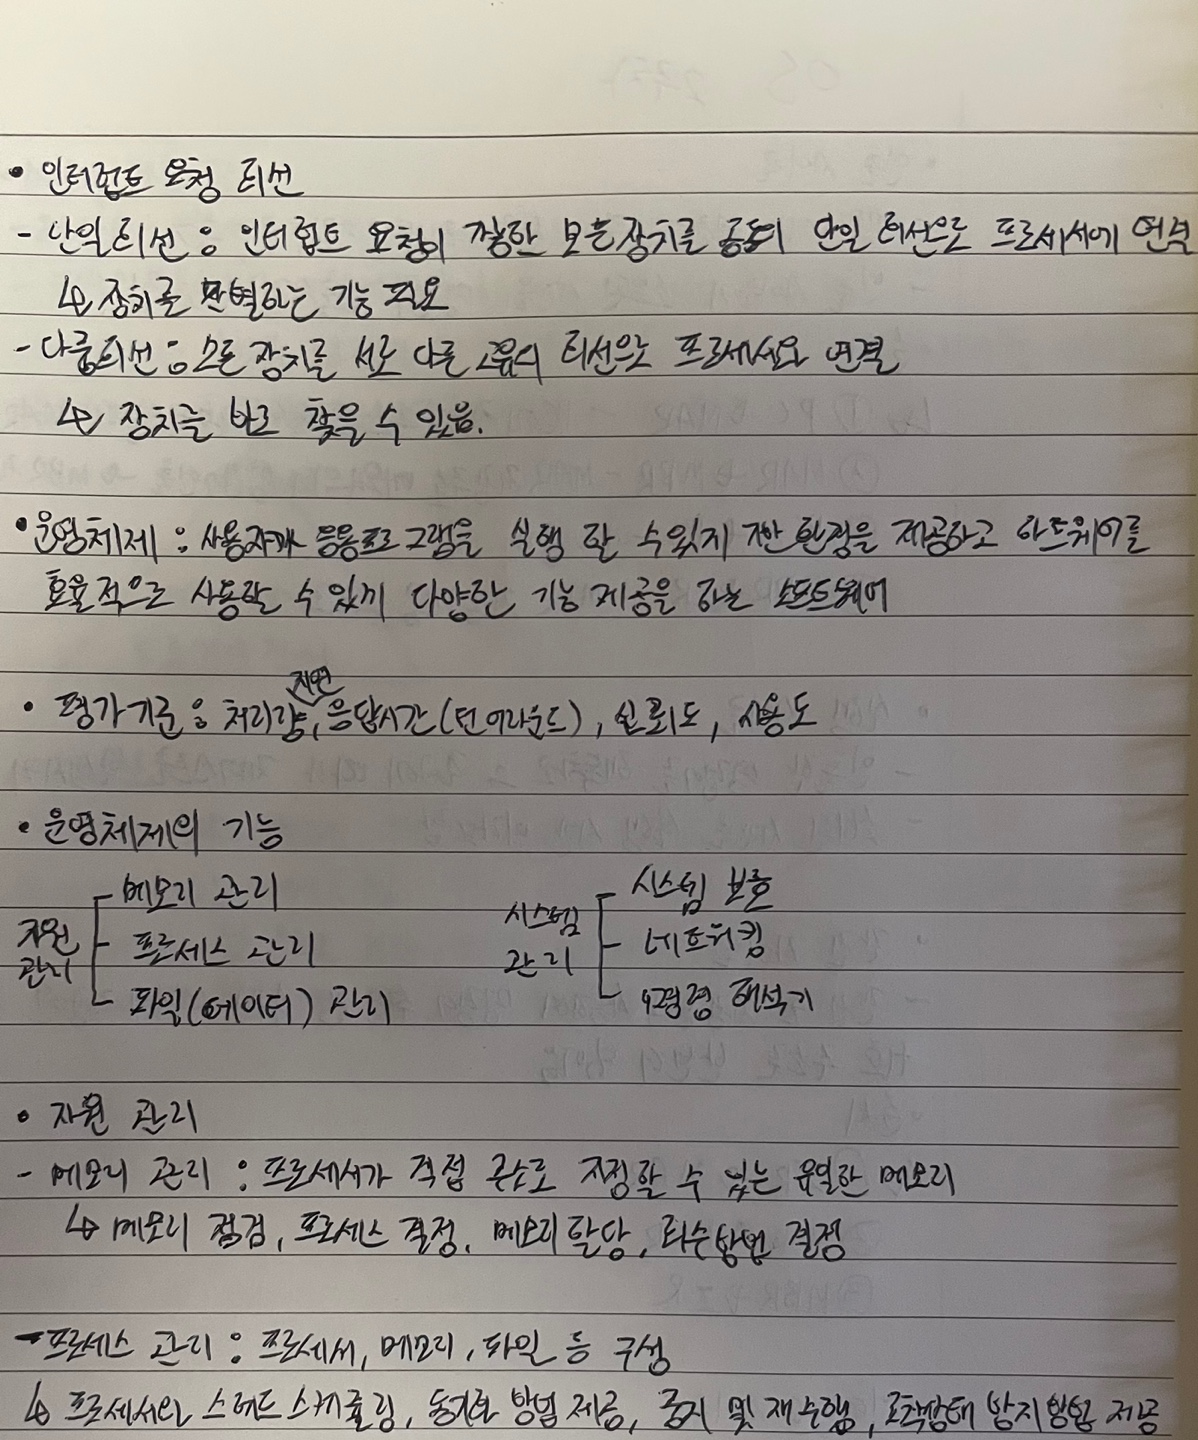 • 인터럽트 요청 회선
- 단일회선 : 인터럽트 요청이 가능한 모든장치를 공통의 단일 회선으로 프로세서에 연결
↳ 장치를 판별하는 기능 필요
- 다중회선 : 모든 장치를 서로 다른 고유의 회선으로 프로세서와 연결
↳ 장치를 바로 찾을 수 있음.
• 운영체제 : 사용자가 응용프로그램을 실행 할 수있게 기반 환경을 제공하고 하드웨어를
효율적으로 사용할 수 있게 다양한 기능 제공을 하는 소프트웨어
지연
• 평가기준 : 처리량, 응답시간(턴 어라운드), 신뢰도, 사용도
• 운영체제의 기능
메모리 관리 시스템 보호
자원 관리 프로세스 관리 시스템 관리 네트워킹
파일(데이터) 관리 명령 해석기
• 자원 관리
- 메모리 관리 : 프로세서가 직접 주소로 지정할 수 있는 유일한 메모리
↳ 메모리 점검, 프로세스 결정, 메모리 할당, 회수방법 결정
- 프로세스 관리 : 프로세서, 메모리, 파일 등 구성
↳ 프로세서와 스레드 스케줄링, 동기화 방법 제공, 중지 및 재수행, 교착상태 방지방법 제공